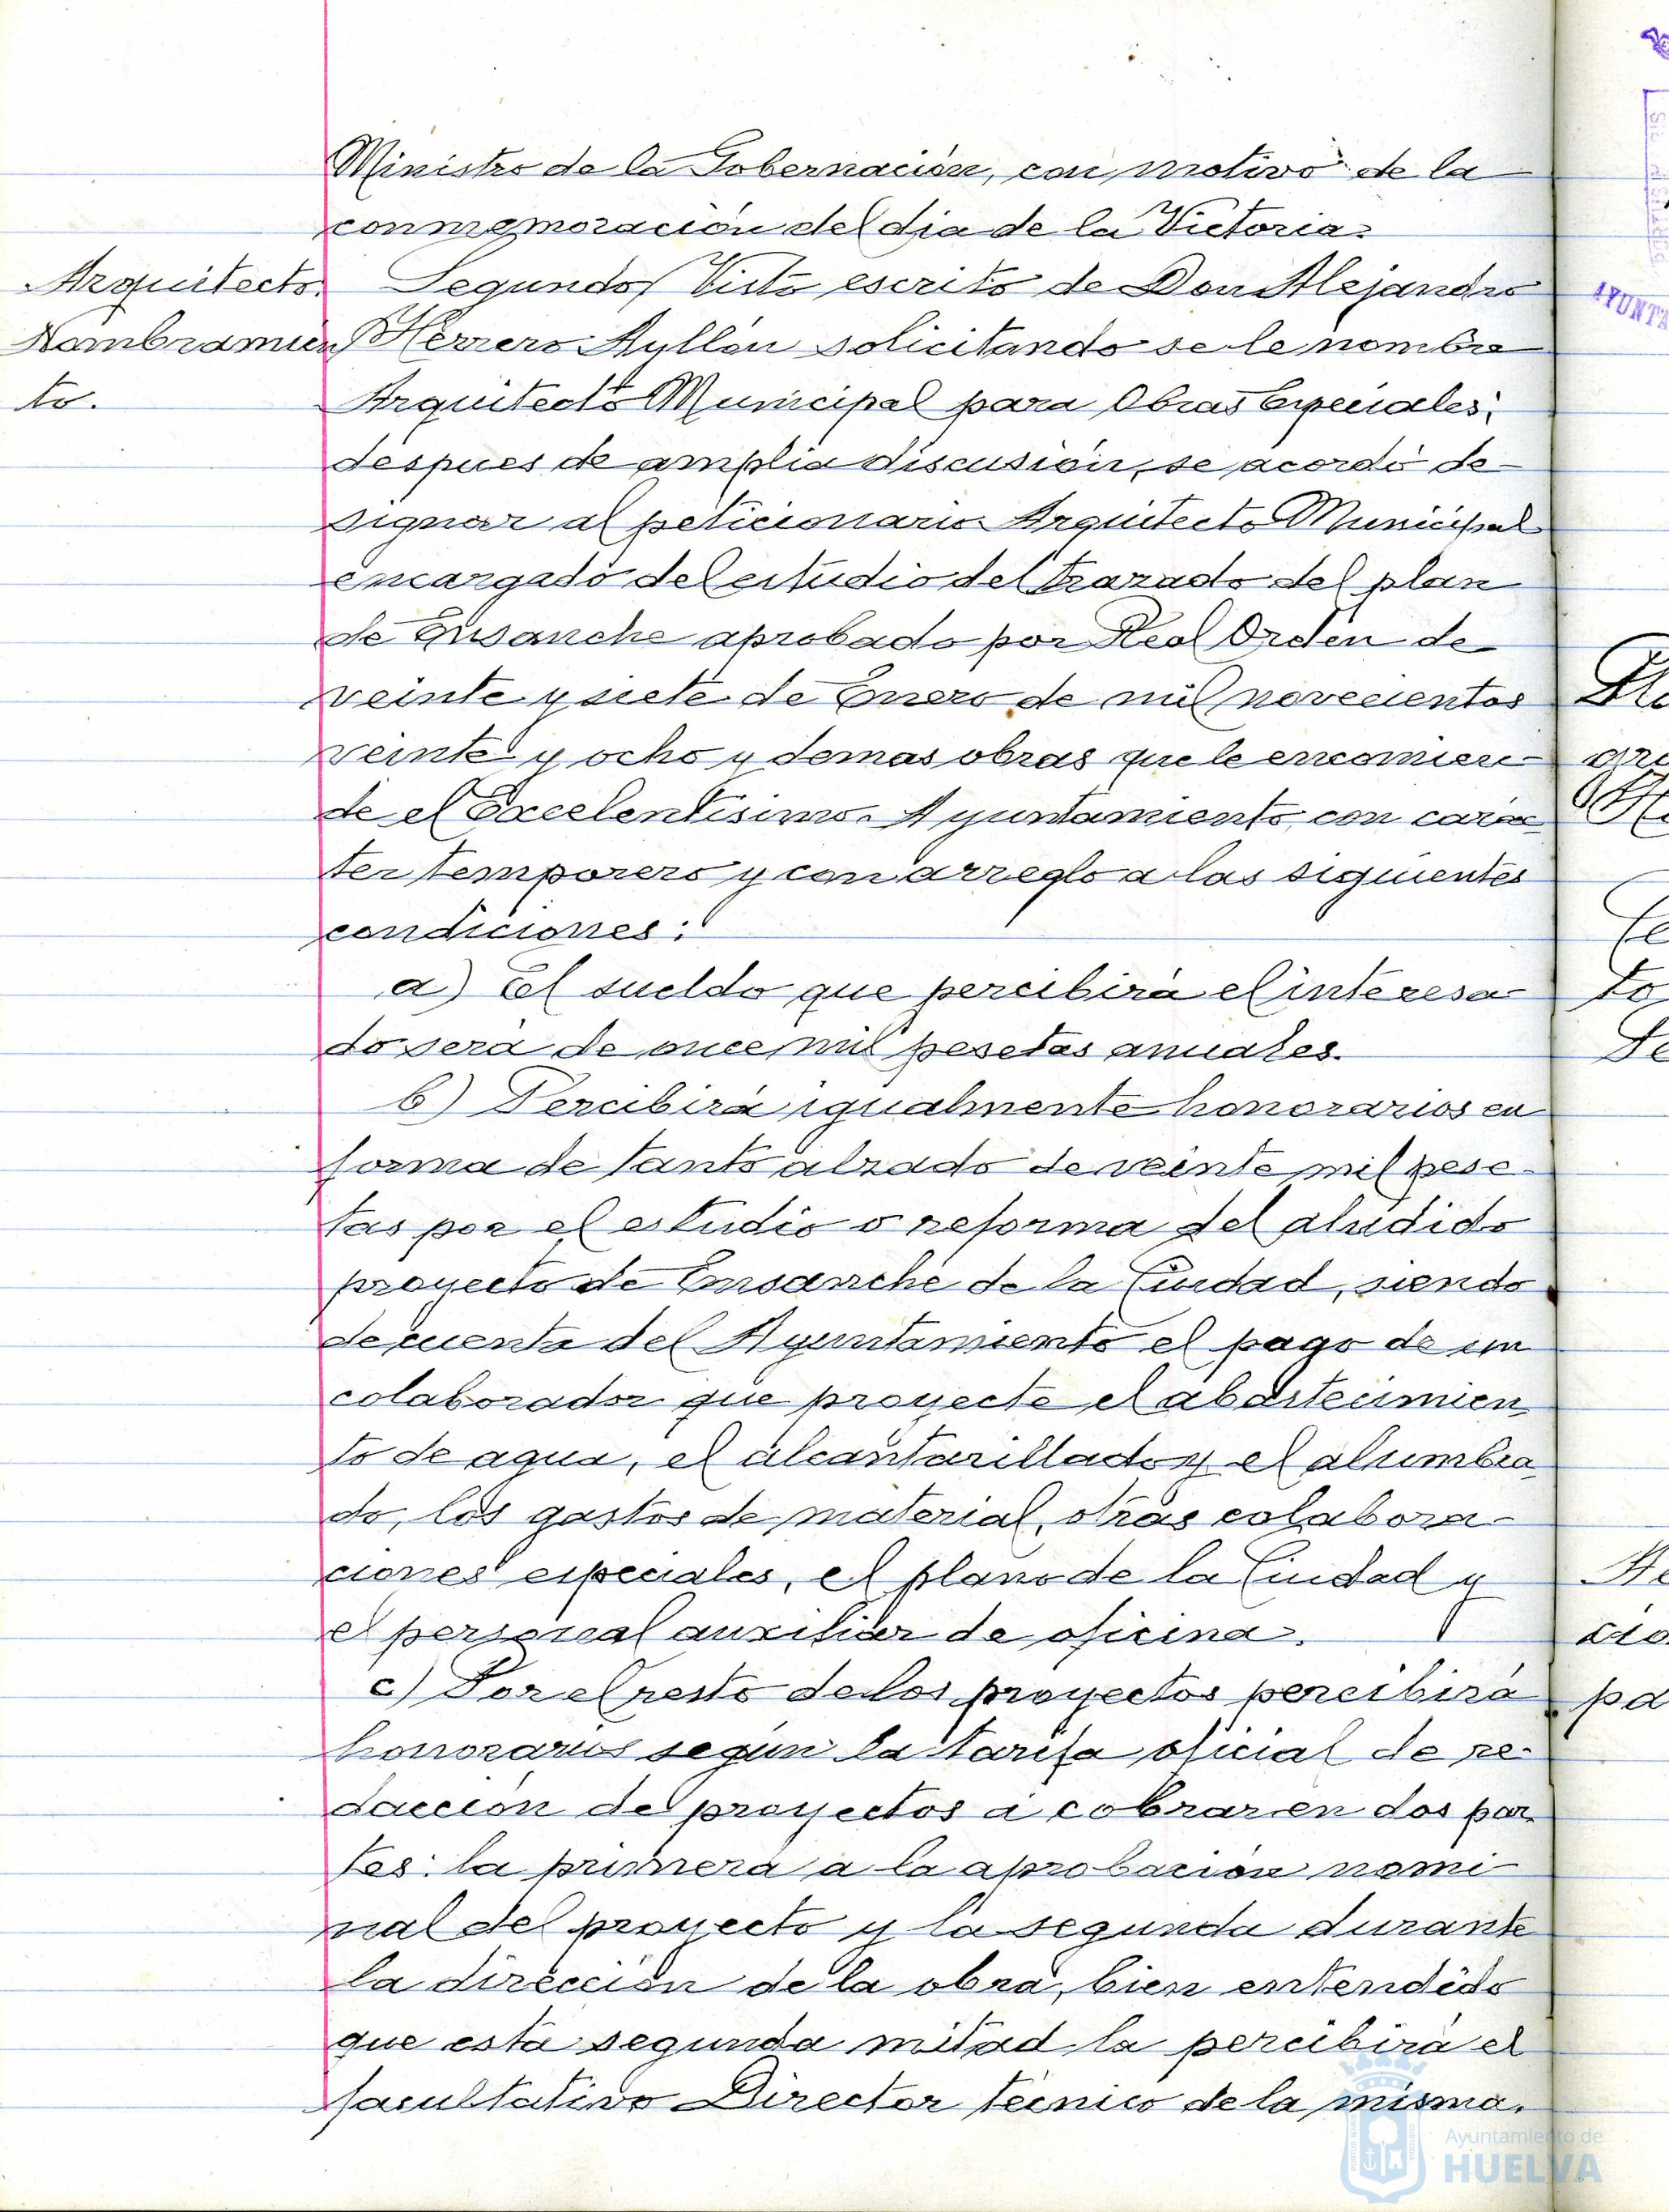 Ministro de la Gobernación, con motivo de la
conmemoración del dia de la Victoria.
Arquitecto.
Nombramien
to.
Segundo/ Visto escrito de Don Alejandro
Herrero Ayllón solicitando se le nombre
Arquitecto Municipal para Obras Especiales;
despues de amplia discusión, se acordó de-
signar al peticionario Arquitecto Municipal
encargado del estudio del trazado del plan
de Ensanche aprobado por Real Orden de
veinte y siete de Enero de mil novecientos
veinte y ocho y demas obras que le encomien-
de el Excelentisimo Ayuntamiento, con carác
ter temporero y con arreglo a las siguientes
condiciones:
a) El sueldo que percibirá el interesa-
do será de once mil pesetas anuales.
b) Percibirá igualmente honorarios en
forma de tanto alzado de veinte mil pese-
tas por el estudio o reforma del aludido
proyecto de Ensanche de la Ciudad, siendo
de cuenta del Ayuntamiento el pago de un
colaborador que proyecte el abastecimien
to de agua, el alcantarillado y el alumbra
do, los gastos de material, otras colabora-
ciones especiales, el plano de la Ciudad y
el personal auxiliar de oficina.
c) Por el resto de los proyectos percibirá
honorarios según la tarifa oficial de re-
dacción de proyectos a cobrar en dos par
tes: la primera a la aprobación nomi-
nal del proyecto y la segunda durante
la dirección de la obra, bien entendido
que esta segunda mitad la percibirá el
facultativo Director técnico de la misma.
AYUNTA
Ayuntamiento de
HUELVA